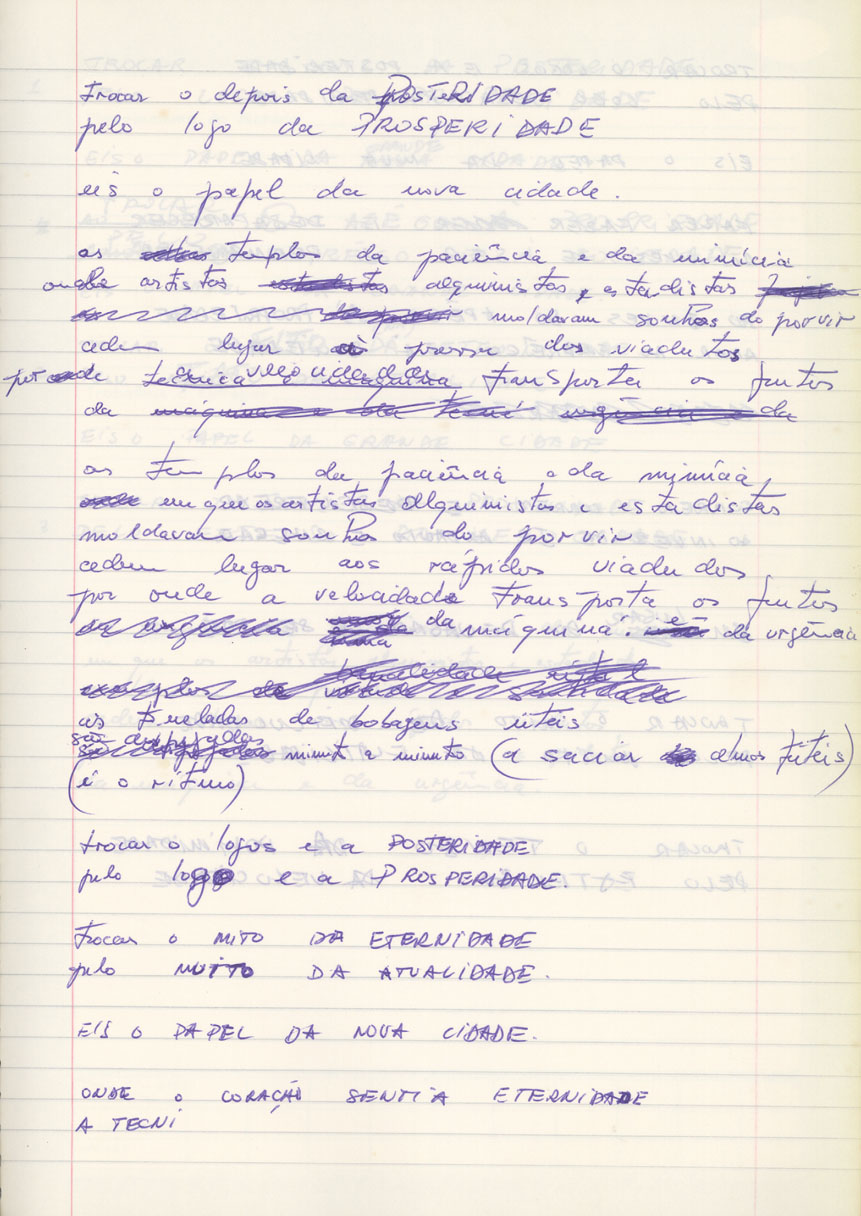 trocar o depois da POSTERIDADE
pelo logo da PROSPERIDADE
eis o papel da nova cidade.
os templos da paciência e da minúcia
onde artistas alquimistas e estadistas
moldavam sonhos do porvir
cedem lugar à pressa dos viadutos
por onde a velocidade transporta os frutos
da
os templos da paciência e da minúcia,
em que os artistas alquimistas e estadistas
moldavam sonhos do porvir
cedem lugar aos rápidos viadutos,
por onde a velocidade transporta os frutos
da máquina e da urgência
as toneladas de bobagens úteis
são minuto a minuto (a saciar almas fúteis)
(é o ritmo)
trocar o logos e a POSTERIDADE
pelo logo e a PROSPERIDADE.
trocar o MITO DA ETERNIDADE
pelo MUITO DA ATUALIDADE.
EIS O PAPEL DA NOVA CIDADE.
ONDE O CORAÇÃO SENTIA ETERNIDADE
A TECNI